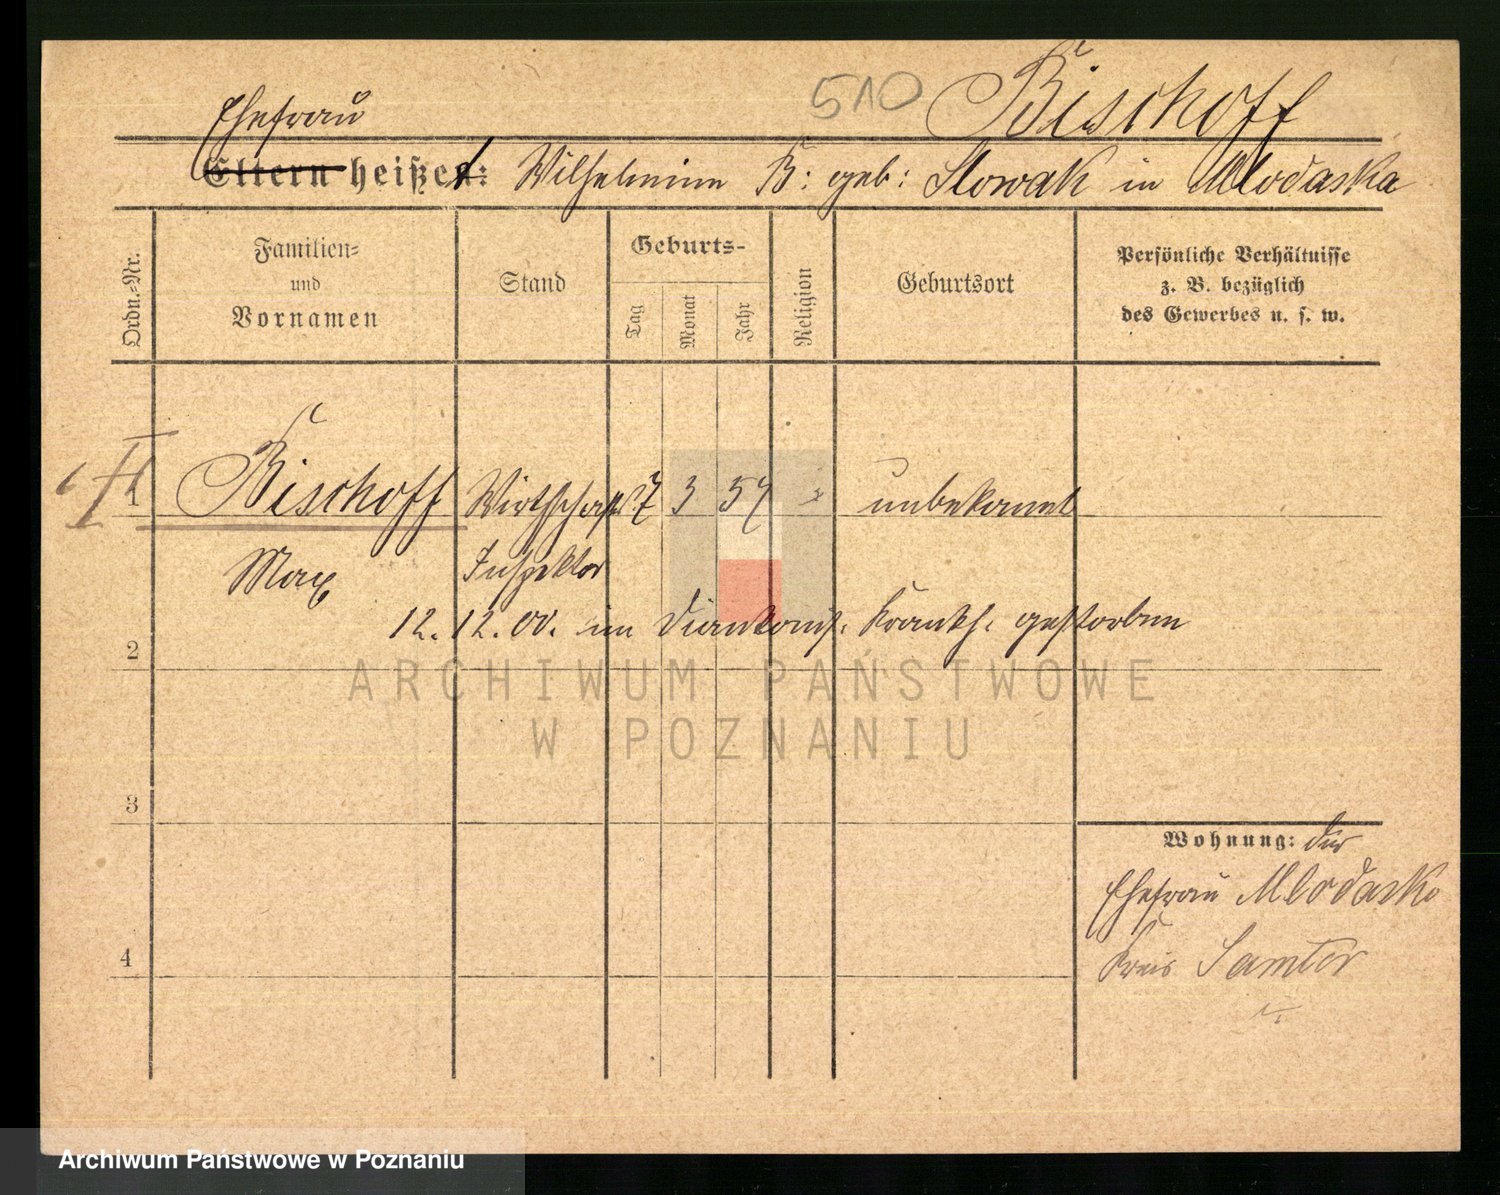 510 Bischoff
Ehefrau
Eltern heißet: Wilhelmine B: geb: Slowak in Mlodasko
Ordn.-Nr.
Familien-
und
Vornamen
Stand
Geburts-
Tag
Monat
Jahr
Religion
Geburtsort
Persönliche Verhältnisse
z. B. bezüglich
des Gewerbes u. s. w.
1 Bischoff Wirthschafts 7 3 57 unbekannt
Max Inspektor
12.12.00. im Diakoniss. Krankh. gestorben
2
ARCHIWUM PAŃSTWOWE
W POZNANIU
3
Wohnung: der
Ehefrau Mlodasko
Kreis Samter
4
Archiwum Państwowe w Poznaniu